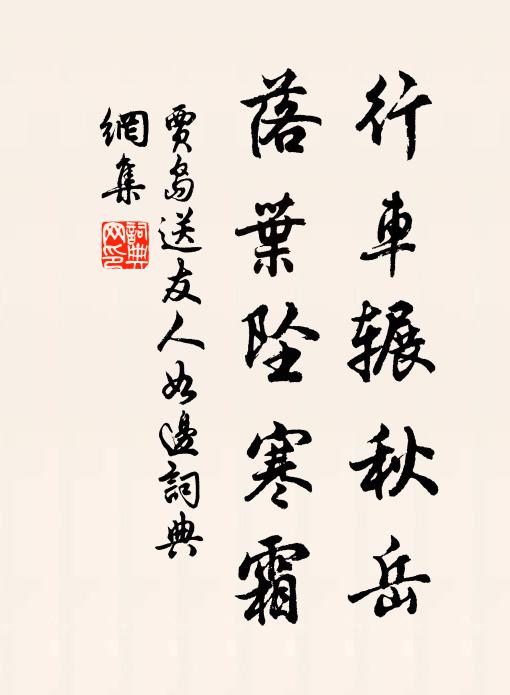 行車辗秋岳
落葉坠寒霜
賈島送友人如邊詞典
網集
詞典
网印